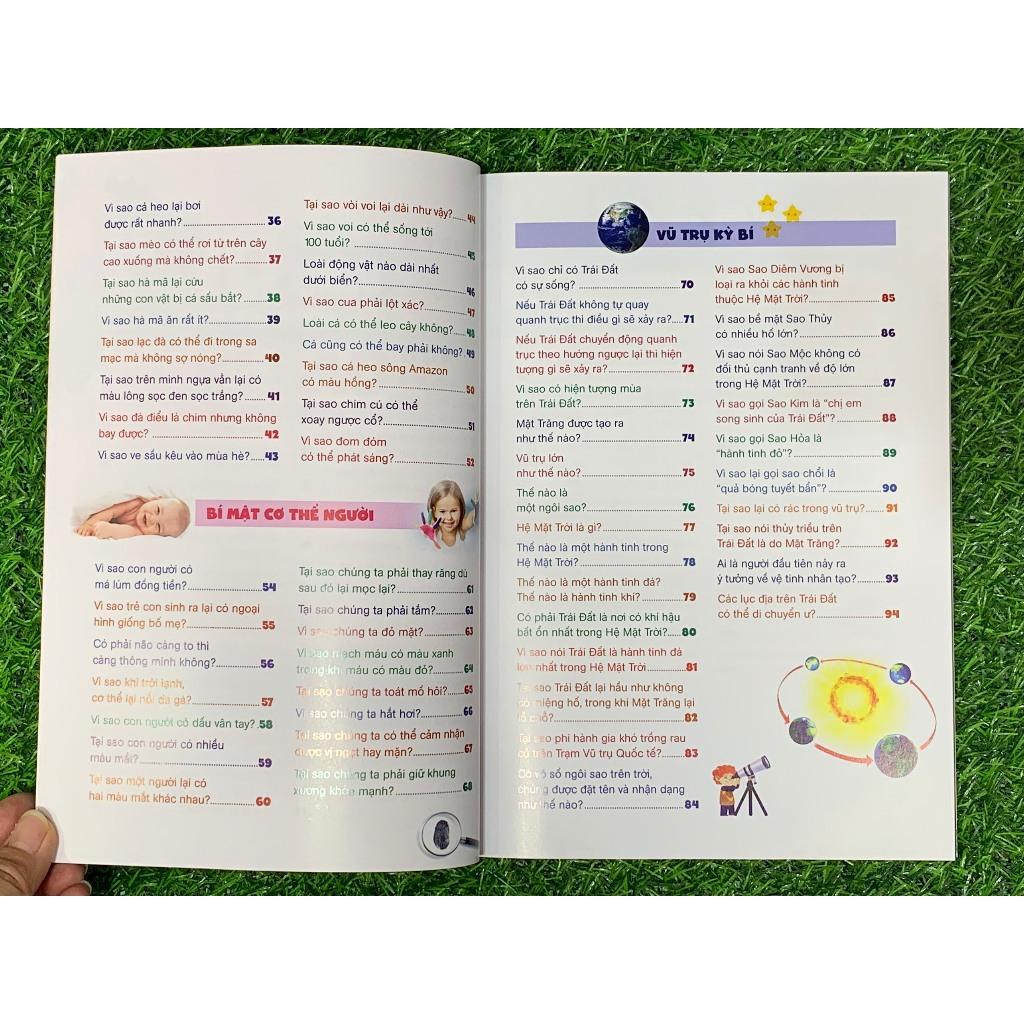 Vì sao cá heo lại bơi
được rất nhanh? 36
Tại sao mèo có thể rơi từ trên cây
cao xuống mà không chết? 37
Tại sao hà mã lại cứu
những con vật bị cá sấu bắt? 38
Vì sao hà mã ăn rất ít? 39
Tại sao lạc đà có thể đi trong sa
mạc mà không sợ nóng? 40
Tại sao trên mình ngựa vằn lại có
màu lông sọc đen sọc trắng? 41
Vì sao đà điểu là chim nhưng không
bay được? 42
Vì sao ve sầu kêu vào mùa hè? 43
Tại sao vòi voi lại dài như vậy? 44
Vì sao voi có thể sống tới
100 tuổi? 45
Loài động vật nào dài nhất
dưới biển? 46
Vì sao cua phải lột xác? 47
Loài cá có thể leo cây không? 48
Cá cũng có thể bay phải không? 49
Tại sao cá heo sông Amazon
có màu hồng? 50
Tại sao chim cú có thể
xoay ngược cổ? 51
Vì sao đom đóm
có thể phát sáng? 52
BÍ MẬT CƠ THỂ NGƯỜI
Vì sao con người có
má lúm đồng tiền? 54
Vì sao trẻ con sinh ra lại có ngoại
hình giống bố mẹ? 55
Có phải não càng to thì
càng thông minh không? 56
Vì sao khi trời lạnh,
cơ thể lại nổi da gà? 57
Vì sao con người có dấu vân tay? 58
Tại sao con người có nhiều
màu mắt? 59
Tại sao một người lại có
hai màu mắt khác nhau? 60
Tại sao chúng ta phải thay răng dù
sau đó lại mọc lại? 61
Tại sao chúng ta phải tắm? 62
Vì sao chúng ta đỏ mặt? 63
Vì sao mạch máu có màu xanh
trong khi máu có màu đỏ? 64
Tại sao chúng ta toát mồ hôi? 65
Vì sao chúng ta hắt hơi? 66
Tại sao chúng ta có thể cảm nhận
được vị ngọt hay mặn? 67
Tại sao chúng ta phải giữ khung
xương khỏe mạnh? 68
VŨ TRỤ KỲ BÍ
Vì sao chỉ có Trái Đất
có sự sống? 70
Nếu Trái Đất không tự quay
quanh trục thì điều gì sẽ xảy ra? 71
Nếu Trái Đất chuyển động quanh
trục theo hướng ngược lại thì hiện
tượng gì sẽ xảy ra? 72
Vì sao có hiện tượng mùa
trên Trái Đất? 73
Mặt Trăng được tạo ra
như thế nào? 74
Vũ trụ lớn
như thế nào? 75
Thế nào là
một ngôi sao? 76
Hệ Mặt Trời là gì? 77
Thế nào là một hành tinh trong
Hệ Mặt Trời? 78
Thế nào là một hành tinh đá?
Thế nào là hành tinh khí? 79
Có phải Trái Đất là nơi có khí hậu
bất ổn nhất trong Hệ Mặt Trời? 80
Vì sao nói Trái Đất là hành tinh đá
lớn nhất trong Hệ Mặt Trời 81
Tại sao Trái Đất lại hầu như không
có miệng hố, trong khi Mặt Trăng lại
lỗ chỗ? 82
Tại sao phi hành gia khó trồng rau
củ trên Trạm Vũ trụ Quốc tế? 83
Có vô số ngôi sao trên trời,
chúng được đặt tên và nhận dạng
như thế nào? 84
Vì sao Sao Diêm Vương bị
loại ra khỏi các hành tinh
thuộc Hệ Mặt Trời? 85
Vì sao bề mặt Sao Thủy
có nhiều hố lớn? 86
Vì sao nói Sao Mộc không có
đối thủ cạnh tranh về độ lớn
trong Hệ Mặt Trời? 87
Vì sao gọi Sao Kim là “chị em
song sinh của Trái Đất”? 88
Vì sao gọi Sao Hỏa là
“hành tinh đỏ”? 89
Vì sao lại gọi sao chổi là
“quả bóng tuyết bẩn”? 90
Tại sao lại có rác trong vũ trụ? 91
Tại sao nói thủy triều trên
Trái Đất là do Mặt Trăng? 92
Ai là người đầu tiên nảy ra
ý tưởng về vệ tinh nhân tạo? 93
Các lục địa trên Trái Đất
có thể di chuyển ư? 94